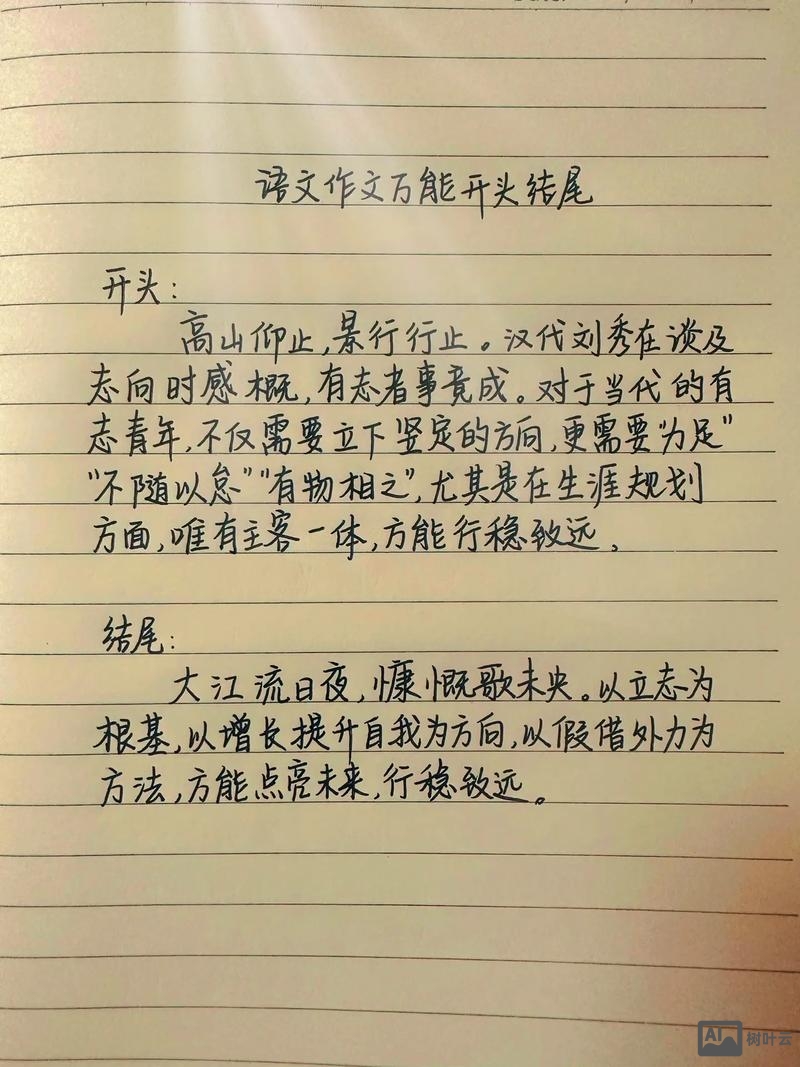 语文作文万能开头结尾
开头：
高山仰止，景行行止。汉代刘秀在谈及
志向时感概，有志者事竟成。对于当代的有
志青年，不仅需要立下坚定的方向，更需要“力足”
“不随以怠”“有物相之”，尤其是在生涯规划
方面，唯有主客一体，方能行稳致远。
结尾：
大江流日夜，慷慨歌未央。以立志为
根基，以增长提升自我为方向，以假借外力为
方法，方能点亮未来，行稳致远。
AI 树叶云